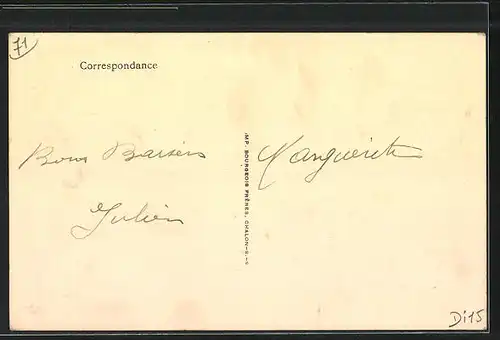 71
Correspondance
Bons Baisers
Julien
IMP. BOURGEOIS FRÈRES, CHALON-S.-S
Marguerite
Di15